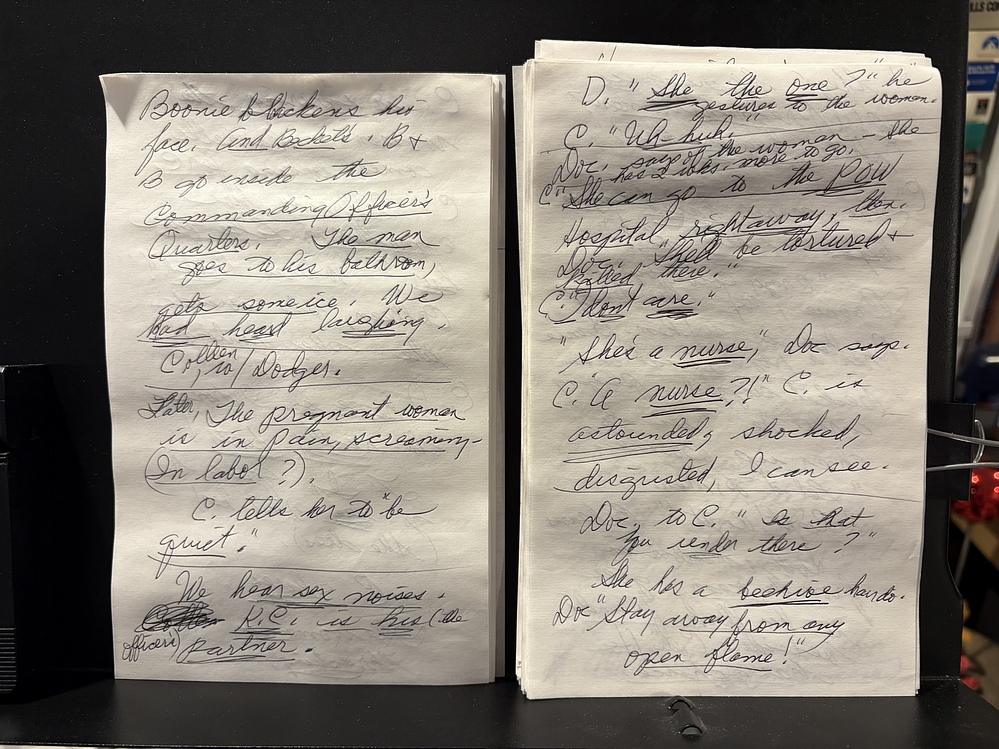 Boonie blackens his
face. And Beckets. B +
B go inside the
Commanding Officer's
Quarters. The man
goes to his bathroom,
gets some ice. We
had heard laughing.
Collen, w/ Dodger.
Later, The pregnant woman
is in pain, screaming -
(In labor?).
C. tells her to "be
quiet."
We hear sex noises.
K.C. is his (the
officer's) partner.
D. "She the one?" he
gestures to the women.
C. "Uh huh."
Doc, says of the woman - She
has 2 wks. more to go.
C "She can go to the POW
Hospital right away, then.
Doc, "She'll be tortured +
killed there."
C. "I don't care."
"She's a nurse," Doc says.
C. "A nurse?!" C. is
astounded, shocked,
disgusted, I can see.
Doc, to C. "Is that
you under there?"
She has a beehive hairdo.
Doc "Stay away from any
open flame!"